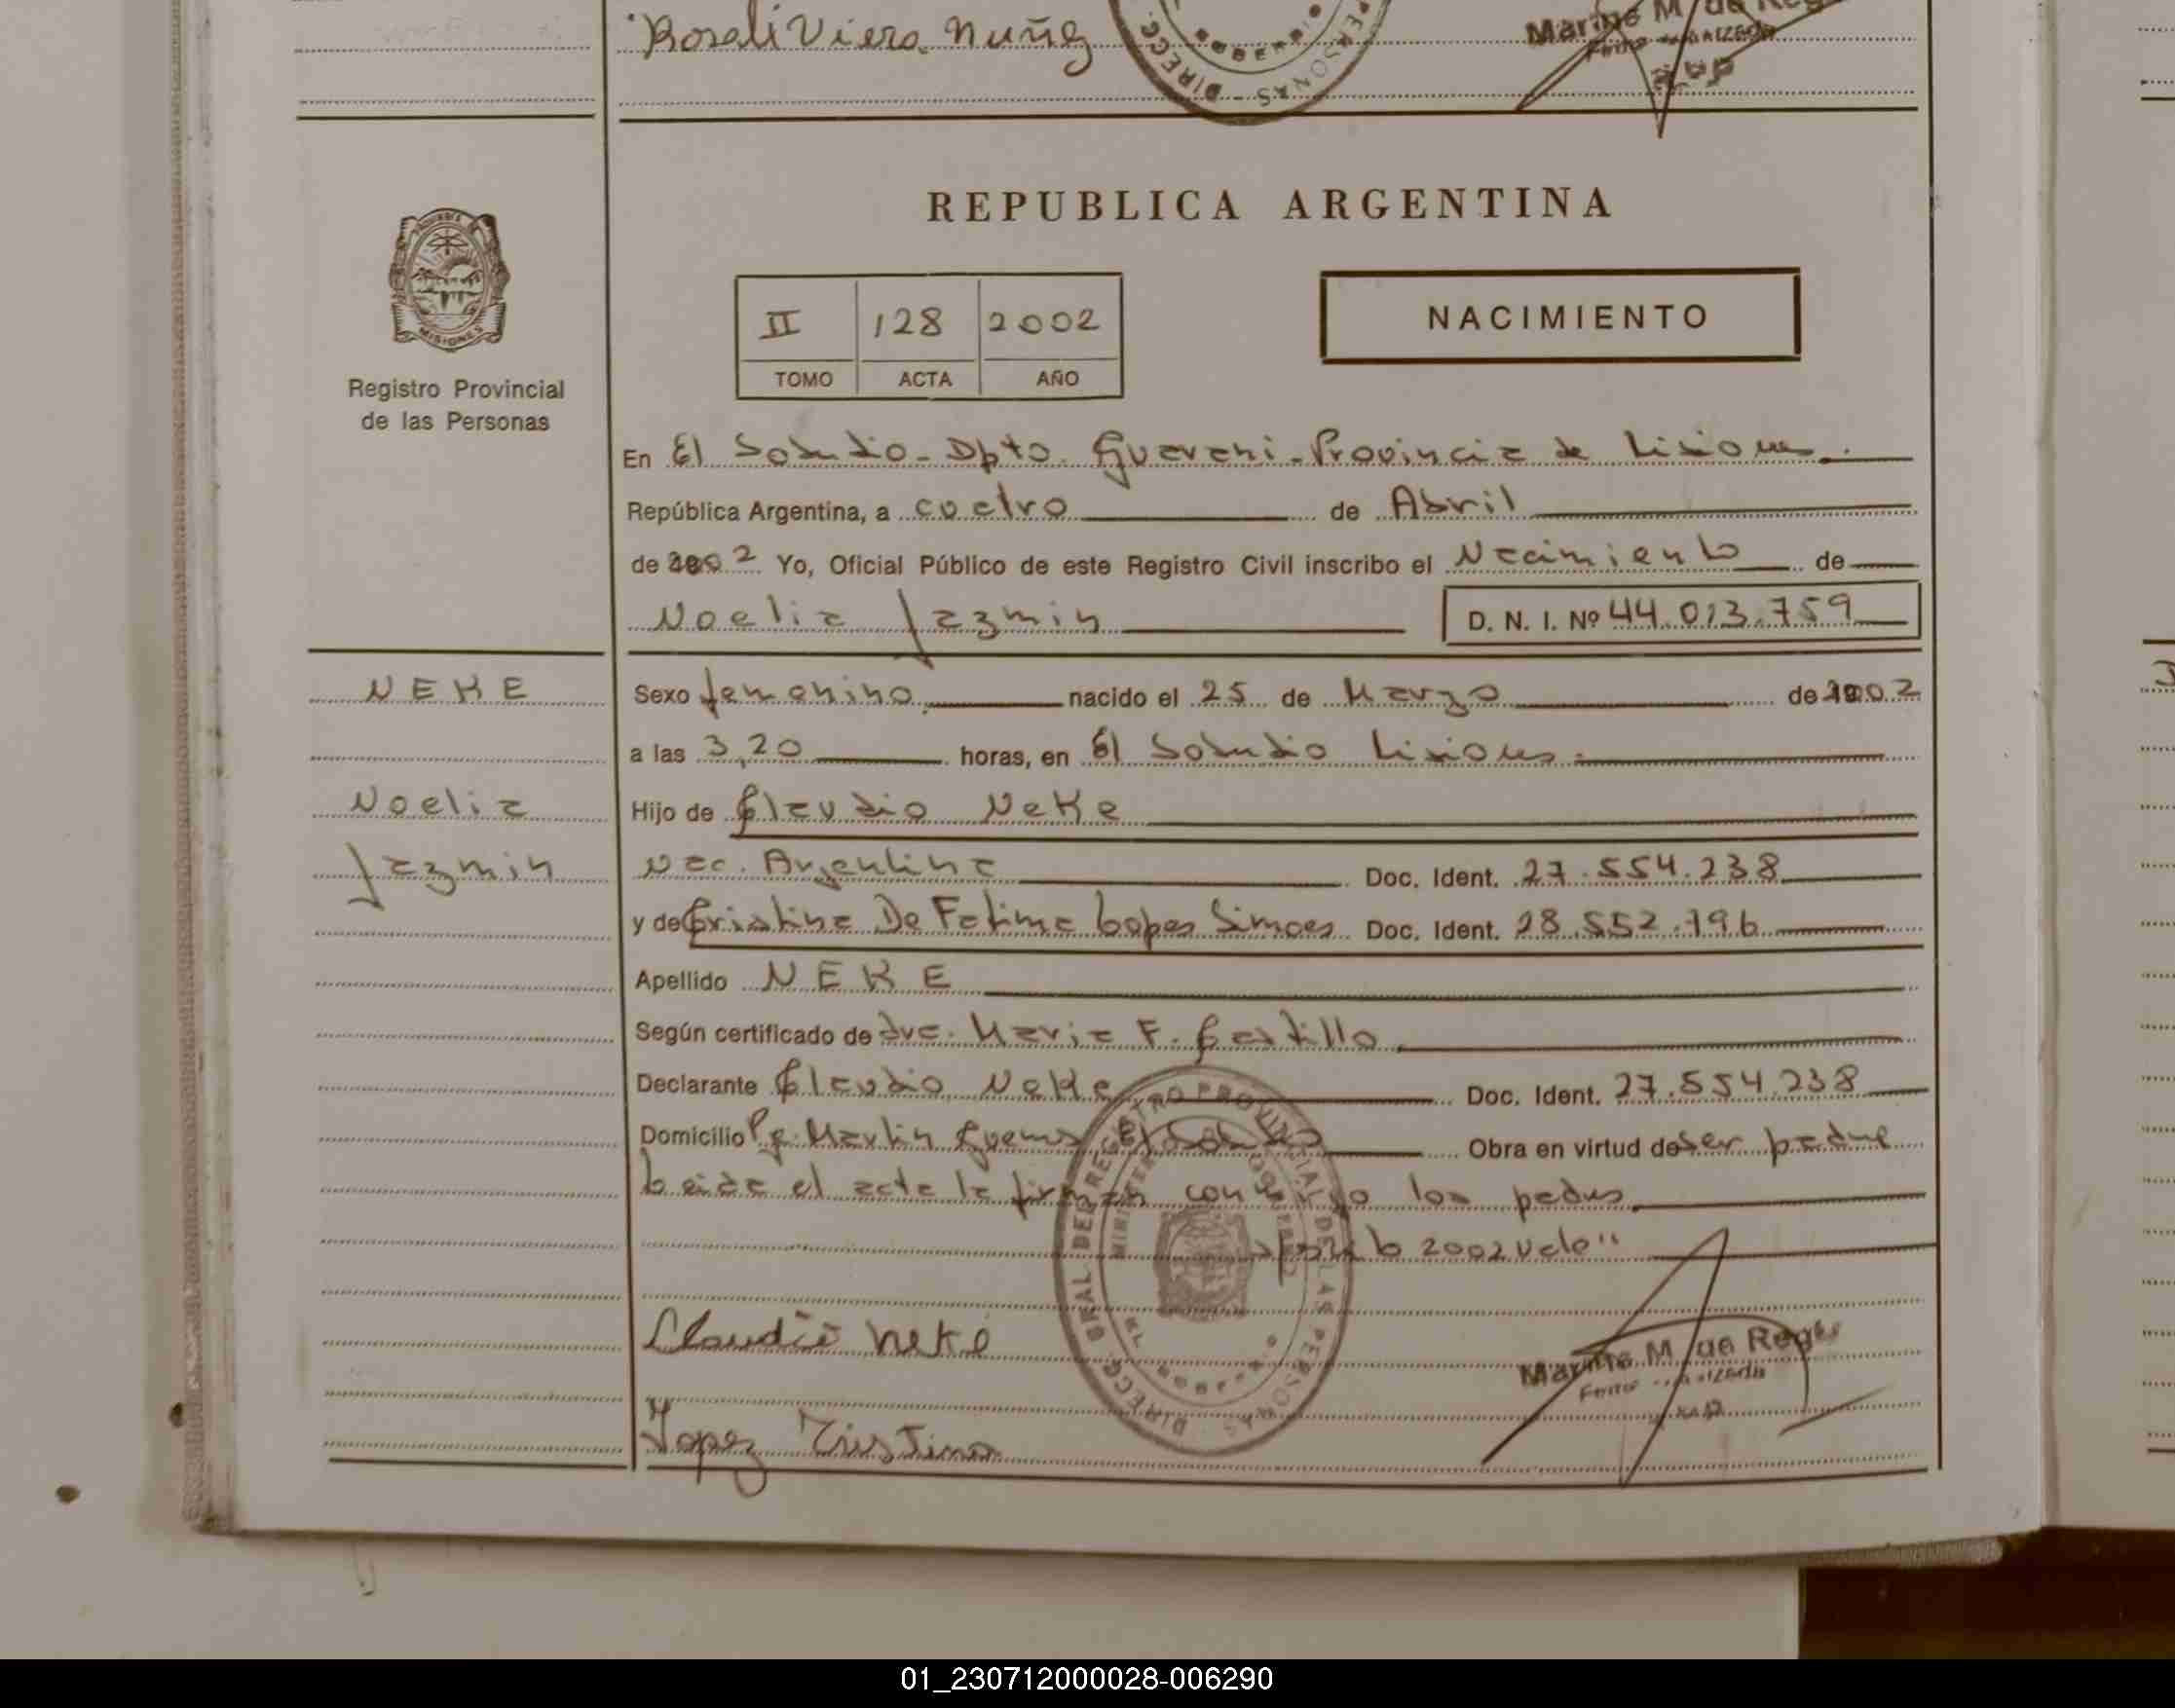 Rosali Viera Nuñez
REPUBLICA ARGENTINA
MISIONES
Registro Provincial
de las Personas
II 128 2002
TOMO ACTA AÑO
NACIMIENTO
En El Soberbio - Dpto. Guarani - Provincia de Misiones.
República Argentina, a cuatro de Abril
de 2002 Yo, Oficial Público de este Registro Civil inscribo el Nacimiento de
Noelia Jazmin D. N. I. Nº 44.013.759
NEKE
Noelia
Jazmin
Sexo femenino. nacido el 25 de Marzo de 2002
a las 3,20 horas, en El Soberbio Misiones.
Hijo de Claudio Neke
Nac. Argentina Doc. Ident. 27.554.238
y de Cristina De Fatima Lopes Simoes Doc. Ident. 28.552.796
Apellido NEKE
Según certificado de dra. Maria F. Castillo.
Declarante Claudio Neke Doc. Ident. 27.554.238
Domicilio Pje. Martin Guemes El Soberbio Obra en virtud de ser padre
Leida el acta la firman conmigo los padres
2002 Vale"
Claudio Neke
Lopez Cristina
DIRECC. GRAL. DEL REGISTRO PROVINCIAL DE LAS PERSONAS
Marina M. da Rosa
01_230712000028-006290